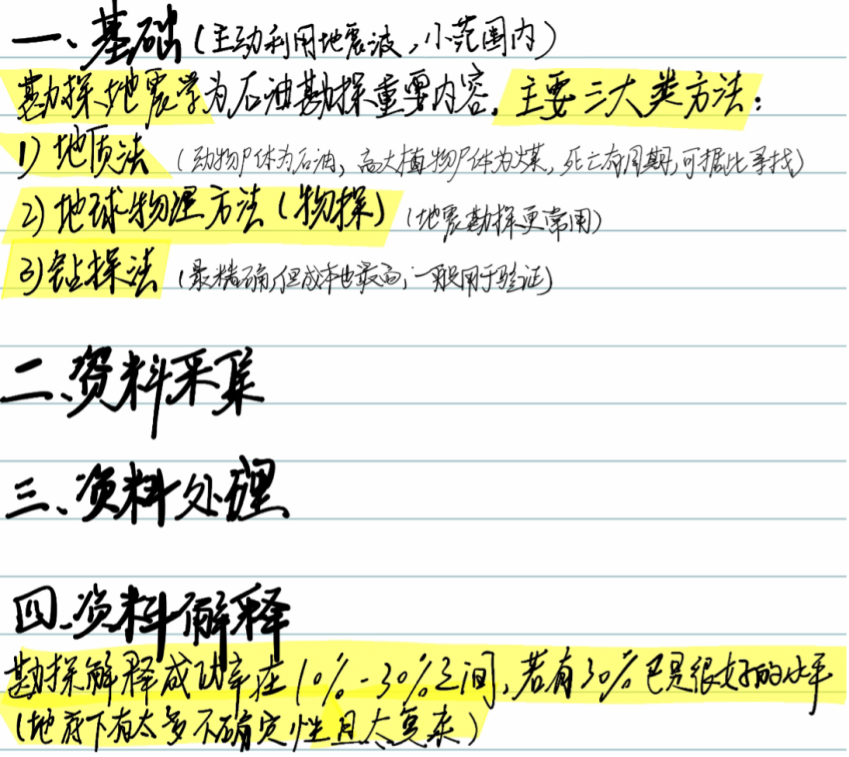 一、基础(主动利用地震波,小范围内)
勘探地震学为石油勘探重要内容.主要三大类方法:
1)地质法(动物尸体为石油,高大植物尸体为煤,死亡有周期,可据此寻找)
2)地球物理方法(物探)(地震勘探更常用)
3)钻探法(最精确,但成本也最高,一般用于验证)
二、资料采集
三、资料处理
四、资料解释
勘探解释成功率在10%-30%之间,若有30%已是很好的水平
(地底下有太多不确定性且太复杂)